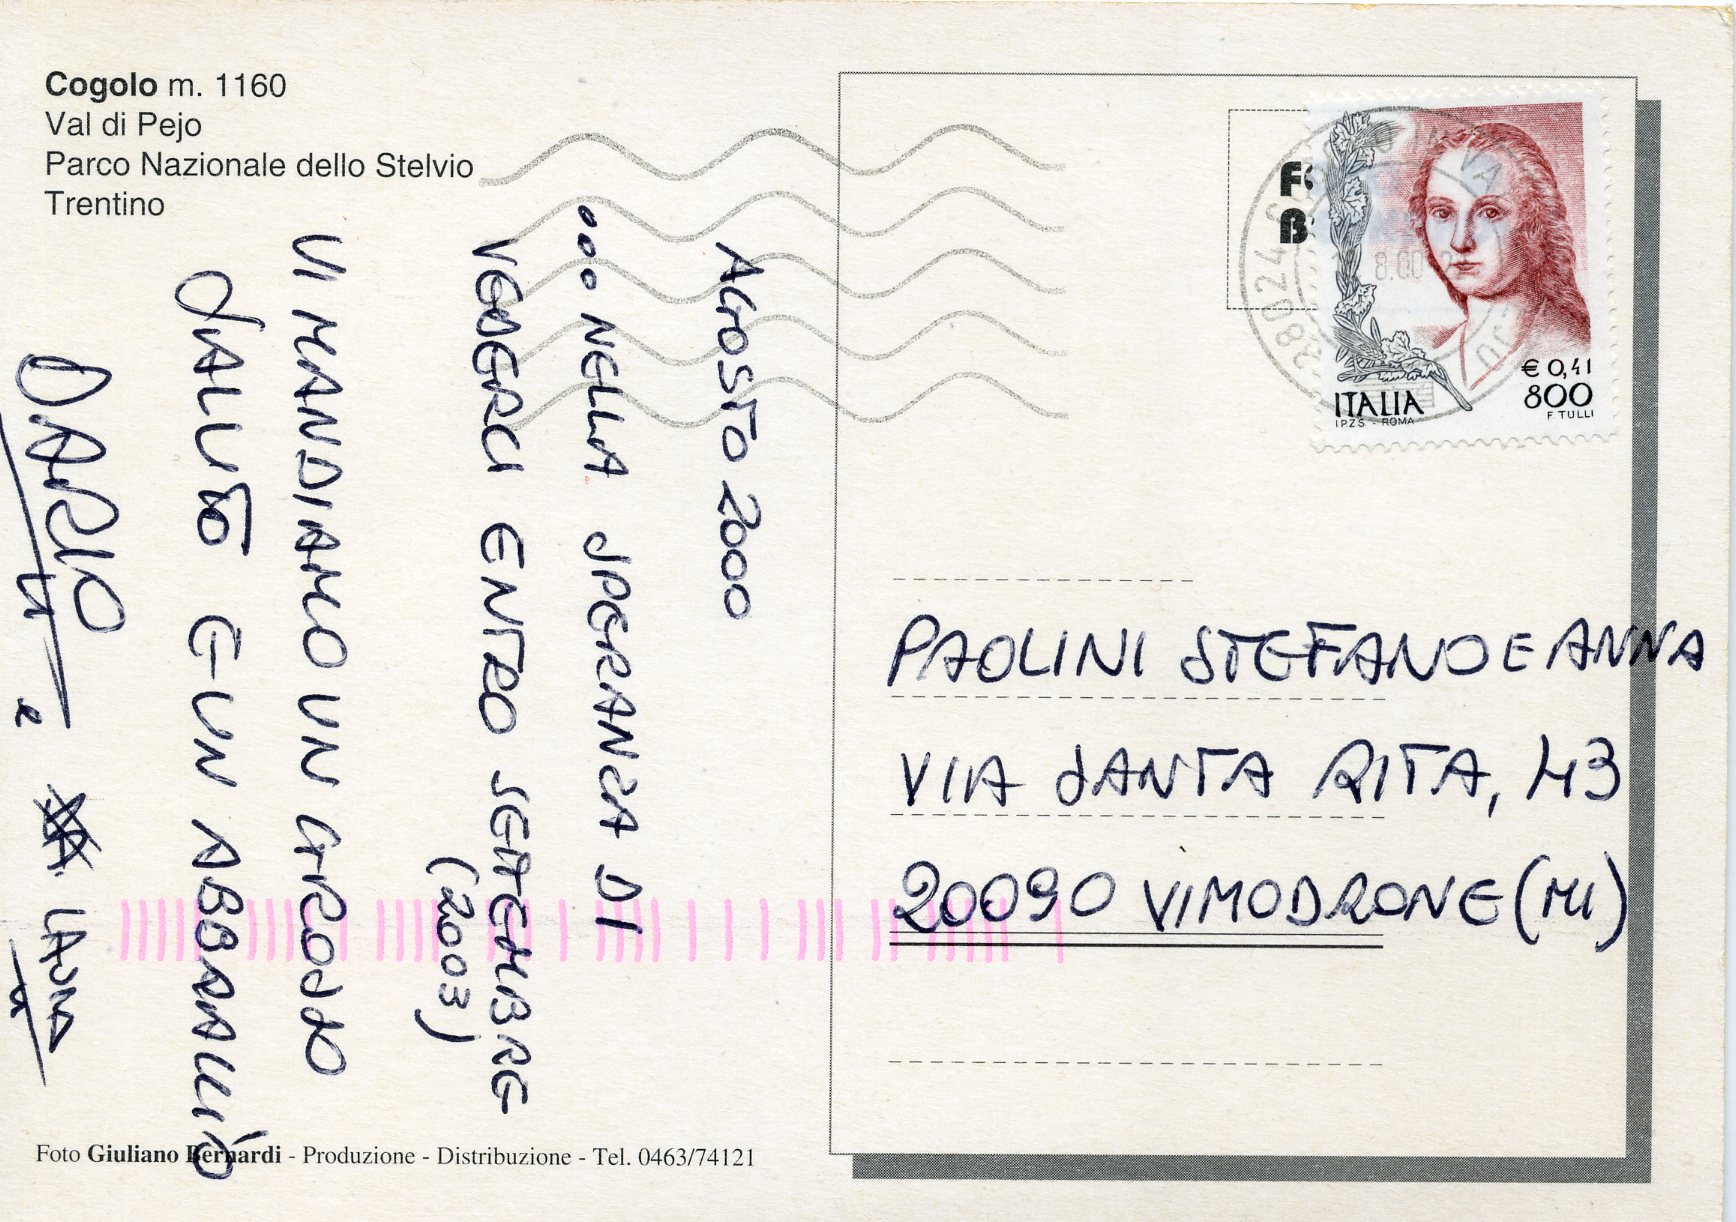 Cogolo m. 1160
Val di Pejo
Parco Nazionale dello Stelvio
Trentino
AGOSTO 2000
... NELLA SPERANZA DI
VEDERCI ENTRO SETTEMBRE
(2003)
VI MANDIAMO UN GROSSO
SALUTO E UN ABBRACCIO
DARIO
e LAURA
Foto Giuliano Bernardi - Produzione - Distribuzione - Tel. 0463/74121
38024
8.00
€ 0,41
800
ITALIA
F TULLI
I.P.Z.S. - ROMA
PAOLINI STEFANO E ANNA
VIA SANTA RITA, 43
20090 VIMODRONE (MI)